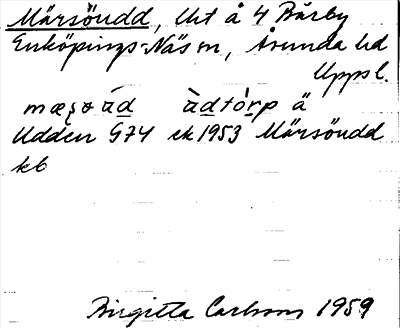 Märsöudd, Uut å 4 Bärby
Enköpings-Näs sn, Åsunda hd
Uppsl.
àdtòrp ä
Udden G74 ek 1953 Märsöudd
kb
Birgitta Carlsson 1959